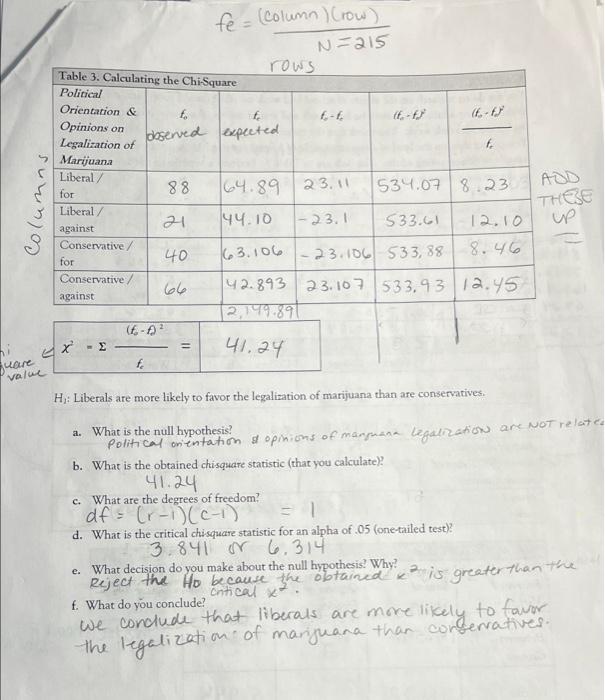 fe = (column)(row)
N = 215
rows
Table 3. Calculating the Chi-Square
Political Orientation & Opinions on Legalization of Marijuana | fₒ observed | fₑ expected | fₒ - fₑ | (fₒ - fₑ)² | (fₒ - fₑ)² / fₑ
columns
Liberal / for | 88 | 64.89 | 23.11 | 534.07 | 8.23
Liberal / against | 21 | 44.10 | -23.1 | 533.61 | 12.10
Conservative / for | 40 | 63.106 | -23.106 | 533.88 | 8.46
Conservative / against | 66 | 42.893 | 23.107 | 533.93 | 12.45
ADD
THESE
UP
2,149.89
x² = Σ (fₒ - fₑ)² / fₑ = 41.24
square
value
H₁: Liberals are more likely to favor the legalization of marijuana than are conservatives.
a. What is the null hypothesis?
Political orientation & opinions of marijuana legalization are NOT
b. What is the obtained chi-square statistic (that you calculate)?
41.24
c. What are the degrees of freedom?
df = (r-1)(c-1) = 1
d. What is the critical chi-square statistic for an alpha of .05 (one-tailed test)?
3.841 or 6.314
e. What decision do you make about the null hypothesis? Why?
Reject the Ho because the obtained x² is greater than the
critical x².
f. What do you conclude?
we conclude that liberals are more likely to favor
the legalization of marijuana than conservatives.